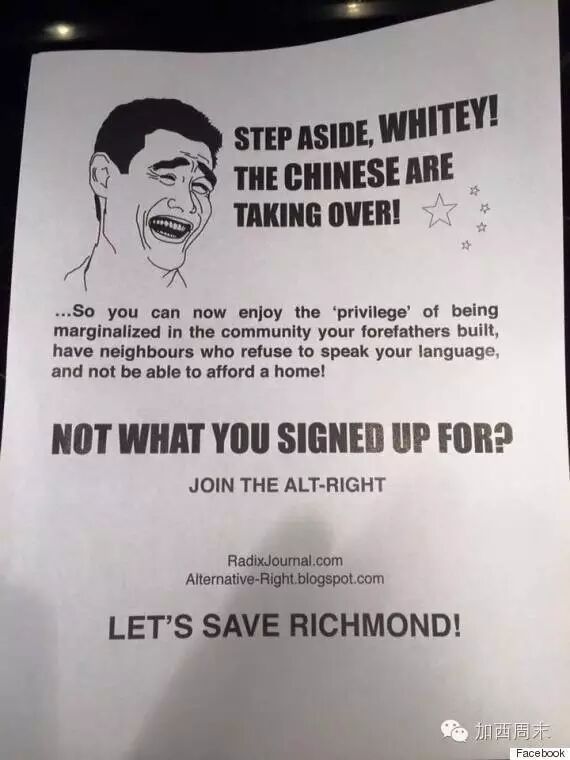 STEP ASIDE, WHITEY!
THE CHINESE ARE
TAKING OVER!
...So you can now enjoy the 'privilege' of being
marginalized in the community your forefathers built,
have neighbours who refuse to speak your language,
and not be able to afford a home!
NOT WHAT YOU SIGNED UP FOR?
JOIN THE ALT-RIGHT
RadixJournal.com
Alternative-Right.blogspot.com
LET'S SAVE RICHMOND!
加西周末
Facebook